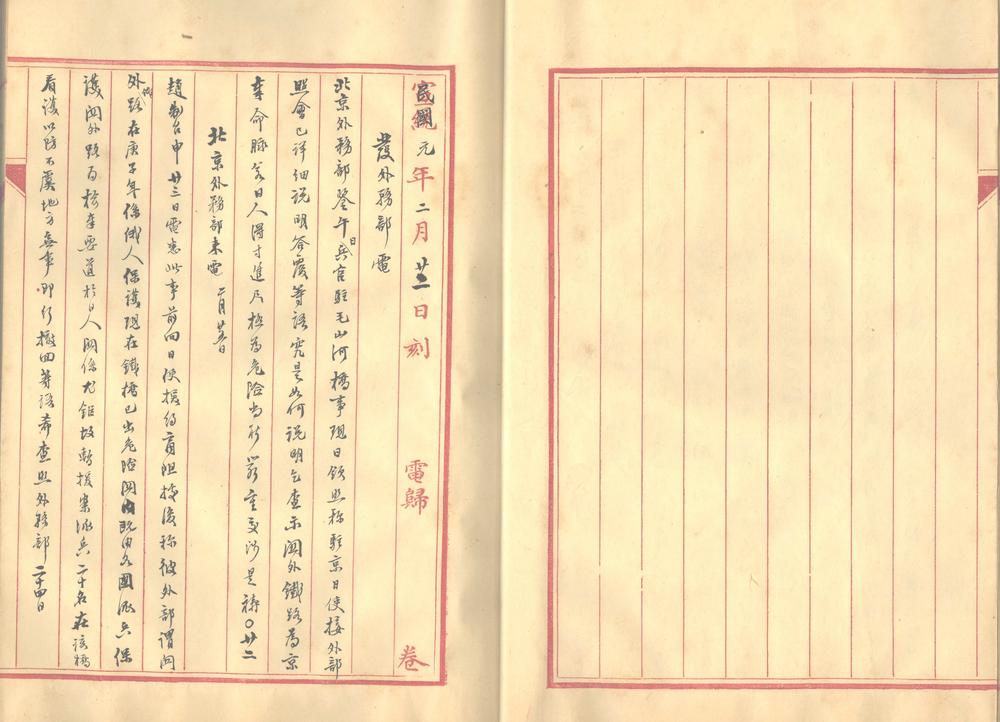 宣統元年二月廿三日刻 電歸 卷
發外務部電
北京外務部鑒午日兵官駐毛山河橋事現日領照称駐京日使接外部
照會已詳細說明答覆等語究是如何說明乞查示關外鐵路為京
奉命脈若日人得寸進尺極為危險尚祈嚴重交涉是禱○廿二
北京外務部來電 二月廿五日
趙制台申廿三日電悉此事前向日使援約商阻據復称彼外部謂關
外鐵路在庚子年係俄人保護現在鐵橋已出危險關內既由各國派兵保
護關外路局橋年要道於日人關係尤鉅故暫援案派兵二十名在該橋
看護以防不虞地方無事即行撤回等語希查照外務部二十四日